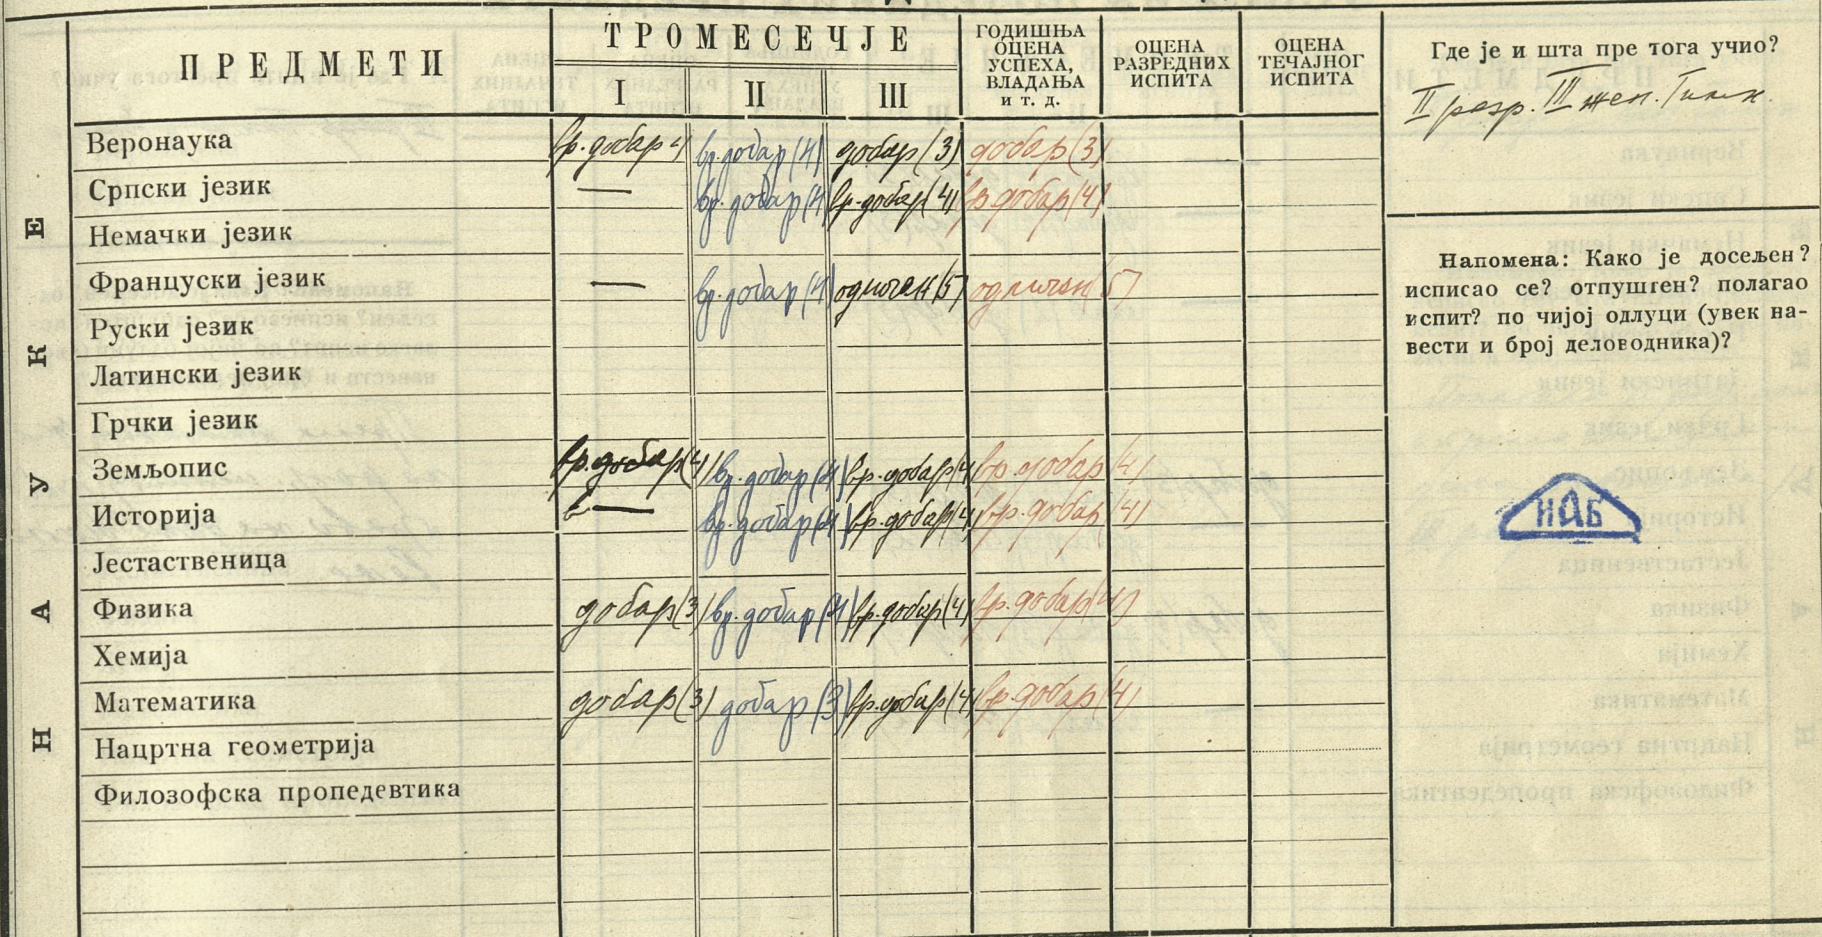 ПРЕДМЕТИ
ТРОМЕСЕЧЈЕ
I II III
ГОДИШЊА
ОЦЕНА
УСПЕХА,
ВЛАДАЊА
и т. д.
ОЦЕНА
РАЗРЕДНИХ
ИСПИТА
ОЦЕНА
ТЕЧАЈНОГ
ИСПИТА
НАУКЕ
Веронаука вр. добар 4) вр. добар (4) добар (3) добар (3)
Српски језик — вр. добар (4) вр. добар (4) вр. добар (4)
Немачки језик
Француски језик — вр. добар (4) одличан (5) одличан (5)
Руски језик
Латински језик
Грчки језик
Земљопис вр. добар (4) вр. добар (4) вр. добар (4) вр. добар (4)
Историја — вр. добар (4) вр. добар (4) вр. добар (4)
Јестаственица
Физика добар (3) вр. добар (4) вр. добар (4) вр. добар (4)
Хемија
Математика добар (3) добар (3) вр. добар (4) вр. добар (4)
Нацртна геометрија
Филозофска пропедевтика
Где је и шта пре тога учио?
II разр. III жен. Гимн.
Напомена: Како је досељен?
исписао се? отпуштен? полагао
испит? по чијој одлуци (увек на-
вести и број деловодника)?
ИАБ